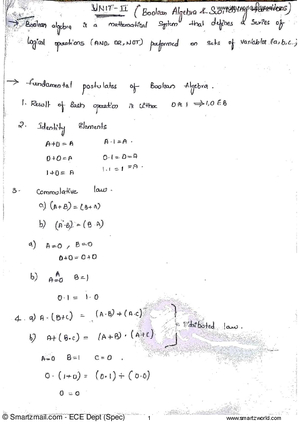 UNIT-II (Boolean Algebra & Switching Functions)
→ Boolean algebra is a mathematical System that defines a series of
logical operations (AND, OR, NOT) preformed on sets of variables (a,b,c..)
→ Fundamental postulates of Boolean Algebra.
1. Result of each operation is either 0 or 1 → 1,0 ∈ B
2. Identity Elements
A+0=A A·1=A.
0+0=A 0·1=0=A
1+0=A 1·1=1=A.
3. Commulative law.
a) (A+B)=(B+A)
b) (A·B)=(B·A)
a) A=0, B=0
0+0=0+0
b) A=0 B=1
0·1 = 1·0
4. a) A·(B+C) = (A·B)+(A·C)
b) A+(B·C) = (A+B)·(A+C)
= Distributed law.
A=0 B=1 C=0.
0·(1+0) = (0·1)+(0·0)
0=0
© Smartzmail.com - ECE Dept (Spec) 1 www.smartzworld.com